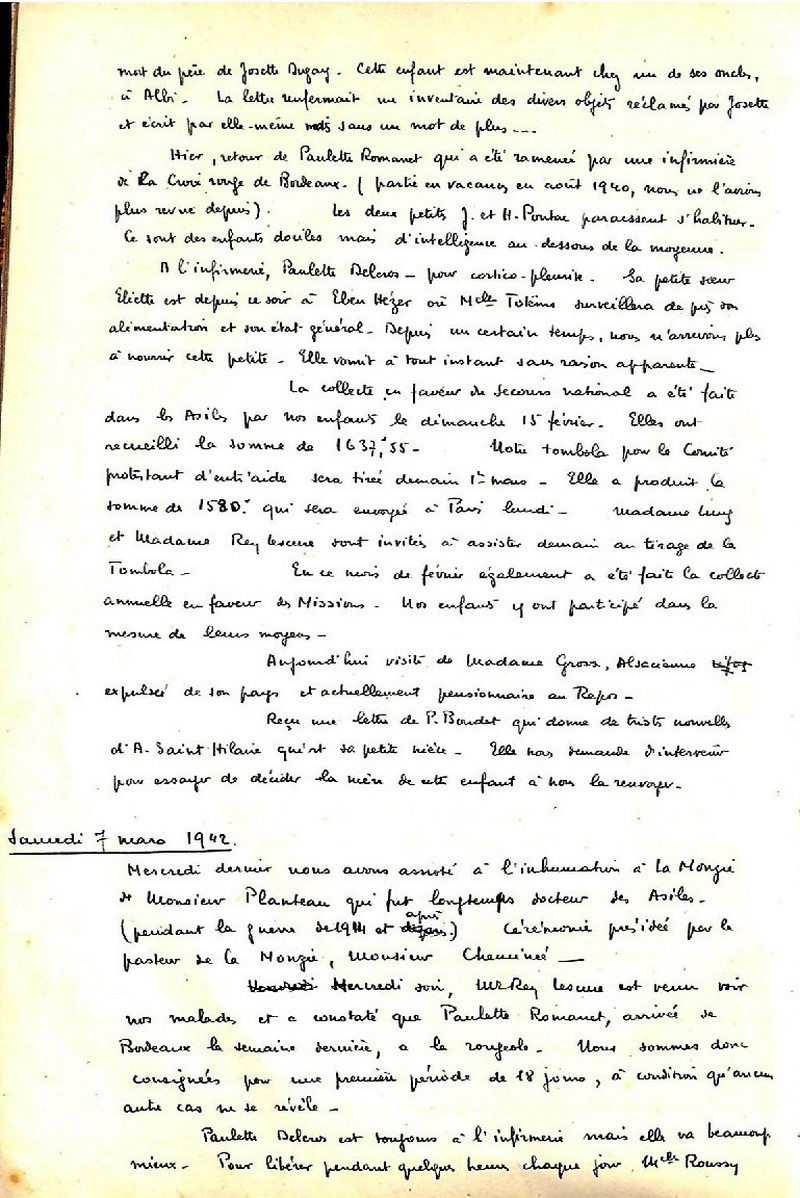 mort du père de Josette Dugay. Cette enfant est maintenant chez un de ses oncles,
à Albi. La lettre renfermait un inventaire des divers objets réclamés par Josette
et écrit par elle-même mais sans un mot de plus ---
Hier, retour de Paulette Romanet qui a été ramenée par une infirmière
de la Croix rouge de Bordeaux. (partie en vacances en août 1940, nous ne l'avions
plus revue depuis). Les deux petits J. et H. Pontac paraissent s'habituer.
Ce sont des enfants dociles mais d'intelligence au-dessous de la moyenne.
A l'infirmerie, Paulette Delcros - pour cortico-pleurite. Sa petite sœur
Eliette est depuis ce soir à Eben Hézer où Melle Tokéms surveillera de près son
alimentation et son état général. Depuis un certain temps, nous n'arrivons plus
à nourrir cette petite - Elle vomit à tout instant sans raison apparente -
La collecte en faveur du Secours national a été faite
dans les Asiles par nos enfants le dimanche 15 février. Elles ont
recueilli la somme de 1637,55 - Notre tombola pour le Comité
protestant d'entr'aide sera tirée demain 1er mars - Elle a produit la
somme de 1580 qui sera envoyée à Paris lundi - Madame
et Madame Rey Lescure sont invitées à assister demain au tirage de la
Tombola - En ce mois de février également a été faite la collecte
annuelle en faveur des Missions. Nos enfants y ont participé dans la
mesure de leurs moyens -
Aujourd'hui visite de Madame Gross, Alsacienne
expulsée de son pays et actuellement pensionnaire au Repos -
Reçu une lettre de P. Boudet qui donne de tristes nouvelles
d'A. Saint Hilaire qui est sa petite nièce - Elle nous demande d'intervenir
pour essayer de décider la mère de cette enfant à nous la renvoyer -
Samedi 7 mars 1942.
Mercredi dernier nous avons assisté à l'inhumation à la Monzie
de Monsieur Planteau qui fut longtemps docteur des Asiles -
(pendant la guerre de 1914 et après) Cérémonie présidée par le
pasteur de la Monzie, Monsieur Cheminée -
Mercredi soir, Mr Rey Lescure est venu voir
nos malades et a constaté que Paulette Romanet, arrivée de
Bordeaux la semaine dernière, a la rougeole - Nous sommes donc
consignées pour une première période de 18 jours, à condition qu'aucun
autre cas ne se révèle -
Paulette Delcros est toujours à l'infirmerie mais elle va beaucoup
mieux - Pour libérer pendant quelques heures chaque jour Melle Roussy